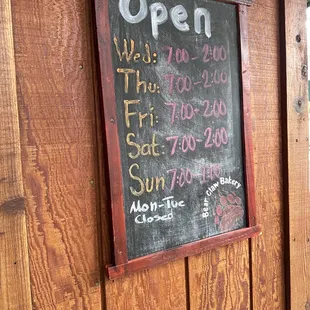 Open
Wed: 7:00-2:00
Thu: 7:00-2:00
Fri: 7:00-2:00
Sat: 7:00-2:00
Sun 7:00-2:00
Mon-Tue
Closed
Bear Claw Bakery